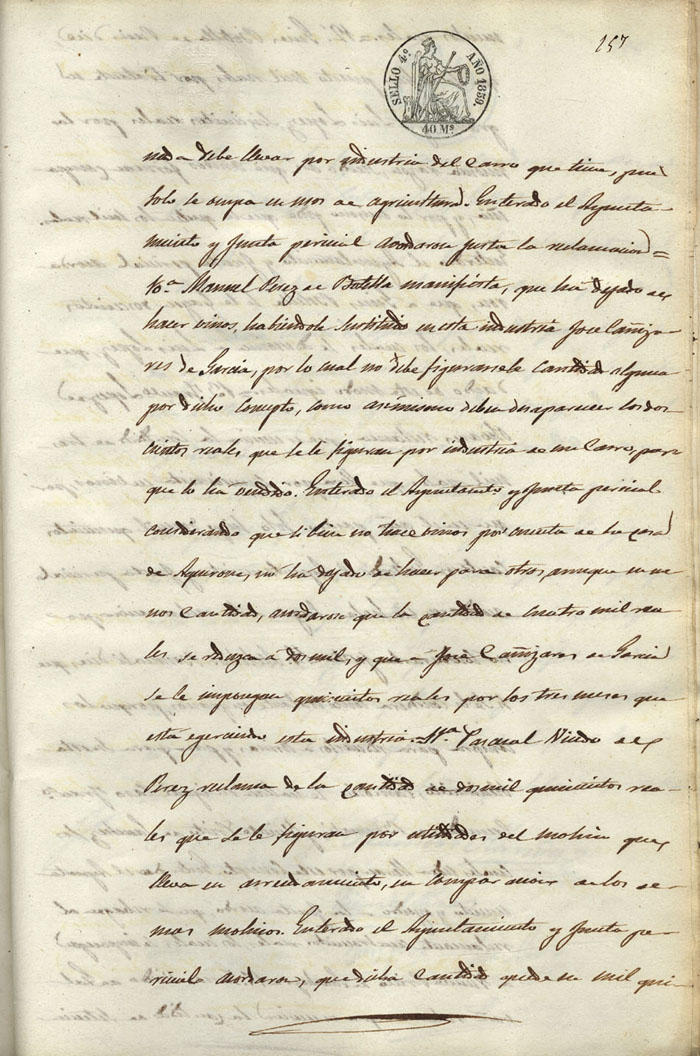 157
SELLO 4º AÑO 1859.
40 Ms
nada debe llevar por industria del Carro que tiene, pues
solo se ocupa en usos de agricultura. Enterado el Ayunta-
miento y Junta pericial acordaron justa la reclamacion=
10.ª Manuel Perez de Botella manifiesta, que ha dejado de
hacer vinos, habiendole sustituido en esta industria Jose Cañiza-
res de Garcia, por lo cual no debe figurarsele Cantidad alguna
por dicho Concepto, como asimismo deben desaparecer los dos-
cientos reales que se le figuran por industria de un Carro, por-
que lo ha vendido. Enterado el Ayuntamiento y Junta pericial
considerando que si bien no hace vinos por cuenta de la casa
de , no ha dejado de hacer para otros, aunque en me-
nos Cantidad, acordaron que la Cantidad de Cuatro mil rea-
les se reduzca á dos mil, y que a José Cañizares de Garcia
se le impongan quinientos reales por los tres meses que
esta ejerciendo esta industria. 11.ª Pascual de
Perez reclama de la Cantidad de dos mil quinientos rea-
les que se le figuran por utilidades del molino que
lleva en arrendamiento, en comparacion de los de-
mas molinos. Enterado el Ayuntamiento y Junta pe-
ricial acordaron, que dicha Cantidad quede en mil qui-